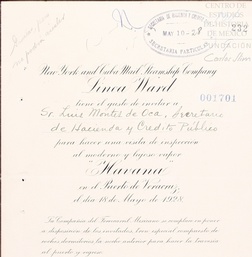 CENTRO DE
ESTUDIOS
DE HISTORIA
DE MEXICO
FUNDACIÓN
Carlos Slim
MAY 10 - 28
SECRETARIA PARTICULAR
New York and Cuba Mail Steamship Company
Linea Ward
001701
tiene el gusto de invitar a
Sr. Luis Montes de Oca, Secretario
de Hacienda y Crédito Público
para hacer una visita de inspección
al moderno y lujoso vapor
"Havana"
en el Puerto de Veracruz,
el día 18 de Mayo de 1928.
La Compañía del Ferrocarril Mexicano se complace en poner
a disposición de los invitados, tren especial compuesto de
coches dormitorios, la noche anterior para hacer la travesía
al puerto y regreso.